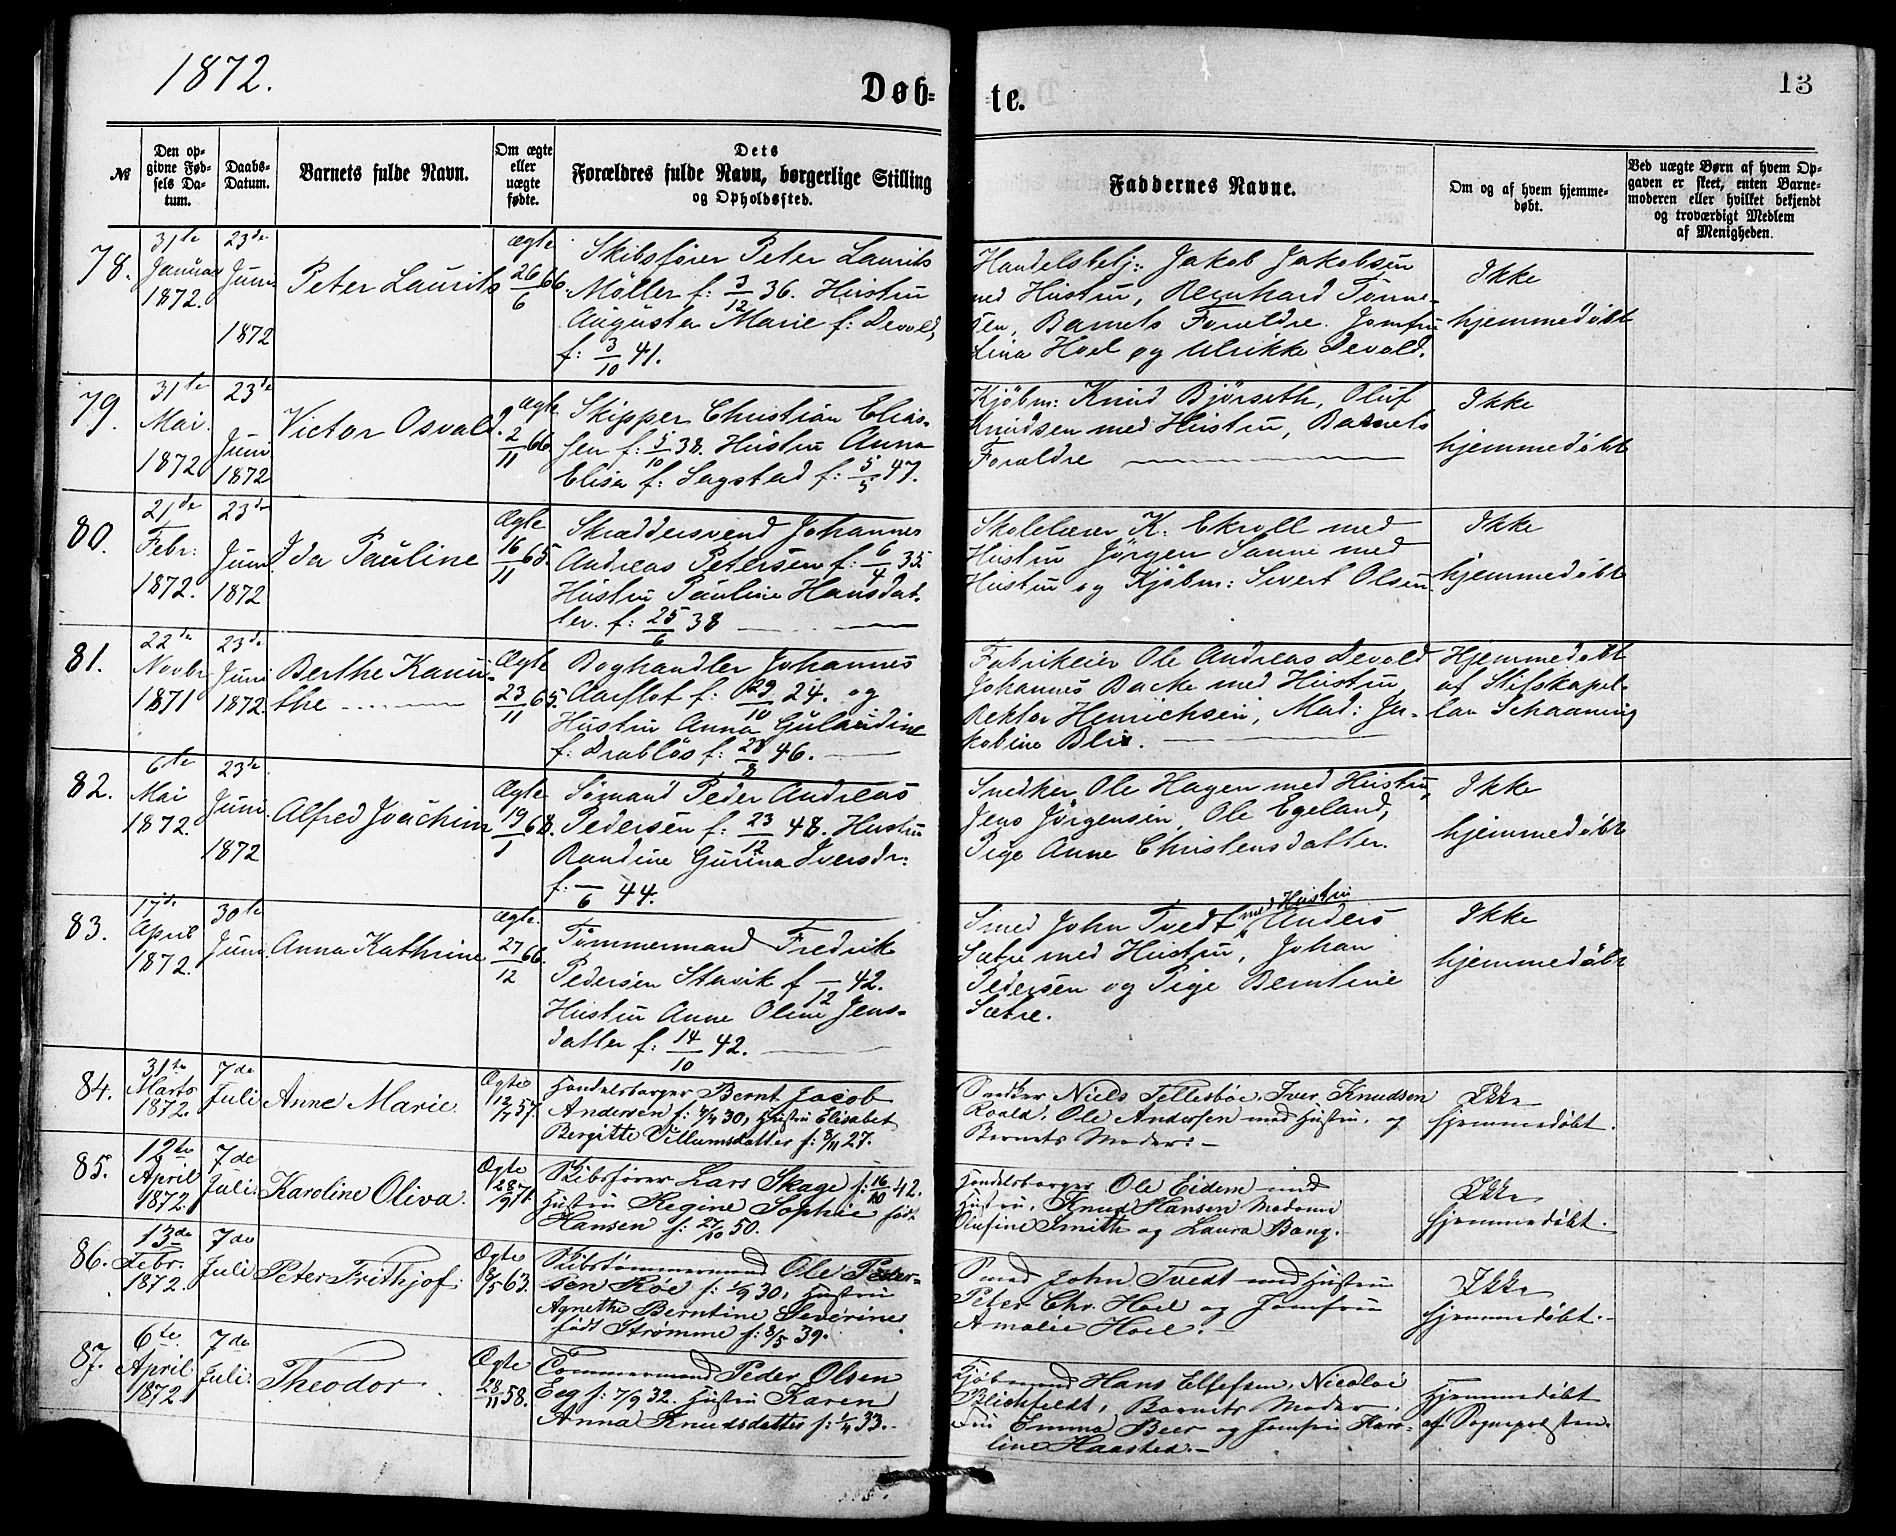 1872.
Døb=
te.
13
№
Den op-
givne Fød-
sels Da-
tum.
Daabs-
Datum.
Barnets fulde Navn.
Om ægte
eller
uægte
fødte.
Dets
Forældres fulde Navn, borgerlige Stilling
og Opholdssted.
Faddernes Navne.
Om og af hvem hjemme-
døbt.
Ved uægte Børn af hvem Op-
gaven er skeet, enten Barne-
moderen eller hvilket bekjendt
og troværdigt Medlem
af Menigheden.
78.
31te
Januar
1872.
23de
Juni
1872
Peter Laurits
Ægte
26/6 66.
Skibsfører Peter Laurits
Möller f: 3/12 36. Hustru
Augusta Marie f: Devold,
f: 3/10 41.
Handelsbetj: Jakob Jakobsen
med Hustru, Bernhard Tönne-
sen, Barnets Forældre. Jomfru
Lina Hoel og Ulrikke Devold.
Ikke
hjemmedøbt
79.
31te
Mai.
1872
23de
Juni
1872
Victor Osvald.
Ægte
2/11 66
Skipper Christian Elias-
sen f: 5/10 38. Hustru Anna
Elisa f: Sagstad f: 5/5 47.
Kjöbm: Knud Björseth, Oluf
Knudsen med Hustru, Barnets
Forældre
Ikke
hjemmedøbt
80.
21de
Febr:
1872.
23de
Juni
1872
Ida Pauline
Ægte
16/11 65.
Skræddersvend Johannes
Andreas Petersen f: 6/4 35.
Hustru Pauline Hansdat-
ter. f: 25/6 38
Skolelærer K. Ekroll med
Hustru Jörgen Sanne med
Hustru og Kjöbm: Sivert Olsen.
Ikke
hjemmedøbt
81.
22de
Novbr
1871
23de
Juni
1872.
Berthe Kanu-
the
Ægte
23/11 65.
Boghandler Johannes
Aarflot f: 29/10 24. og
Hustru Anna Gulaudine
f: Drablös f: 28/8 46.
Fabrikeier Ole Andreas Devold
Johannes Backe med Hustru
Rektor Henrichsen, Mad: Ja-
kobine Blix.
Hjemmedøbt
af Stifskapel-
lan Schaaning
82.
6te
Mai
1872.
23de
Juni.
1872
Alfred Joachim
Ægte
19/1 68.
Sömand Peder Andreas
Pedersen f: 23/12 48. Hustru
Randine Gurina Iversdr:
f: —/6 44.
Snedker Ole Hagen med Hustru,
Jens Jörgensen, Ole Egeland,
Pige Anne Christensdatter.
Ikke
hjemmedøbt
83.
17de
April
1872.
30te
Juni
Anna Kathrine
Ægte.
27/12 66.
Tömmermand Fredrik
Pedersen Stavik f —/12 42.
Hustru Anne Oline Jens-
datter f: 14/10 42.
med Hustru
Smed John Tvedt Anders
Sætre med Hustru, Johan
Pedersen og Pige Berntine
Sætre.
Ikke
hjemmedøbt
84.
31te
Marts
1872.
7de
Juli
Anne Marie
Ægte
12/7 57.
Handelsborger Bernt Jacob
Andersen f: 30, Hustru Elisabet
Bergitte Villumsdatter f: 8/11 27.
Snedker Niels Tellesbøe, Iver Knudsen
Roald, Ole Andersen med Hustru, og
Barnets Moder.
Ikke
hjemmedøbt.
85.
12te
April
1872.
7de
Juli.
Karoline Oliva.
Ægte
28/9 71.
Skibsfører Lars Skage f: 16/10 42.
Hustru Regine Sophie født
Hansen f: 27/10 50.
Handelsborger Ole Eidem med
Hustru, Knud Hansen Madame
Olufine Smith og Laura Bang.
Ikke
hjemmedøbt.
86.
13de
Febr.
1872.
7de
Juli
Peter Frithjof.
Ægte
8/5 63.
Skibstømmermand Ole Peder-
sen Røe f: 1/9 30, Hustru
Agnethe Berntine Severine
født Strømme f: 8/5 39.
Smed John Tvedt med Hustru
Peter Chr. Hoel og Jomfru
Amalie Hoel.
Ikke
hjemmedøbt.
87.
6te
April.
1872.
7de
Juli.
Theodor.
Ægte
28/11 58.
Tømmermand Peder Olsen
Eeg f: 7/9 32. Hustru Karen
Anna Knudsdatter f: 1/4 33.
Kjøbmand Hans Ellefsen, Nicolai
Blichfeldt, Barnets Moder,
Fru Emma Beer og Jomfru Karo-
line Haasted.
Hjemmedøbt
af Sognepræsten.